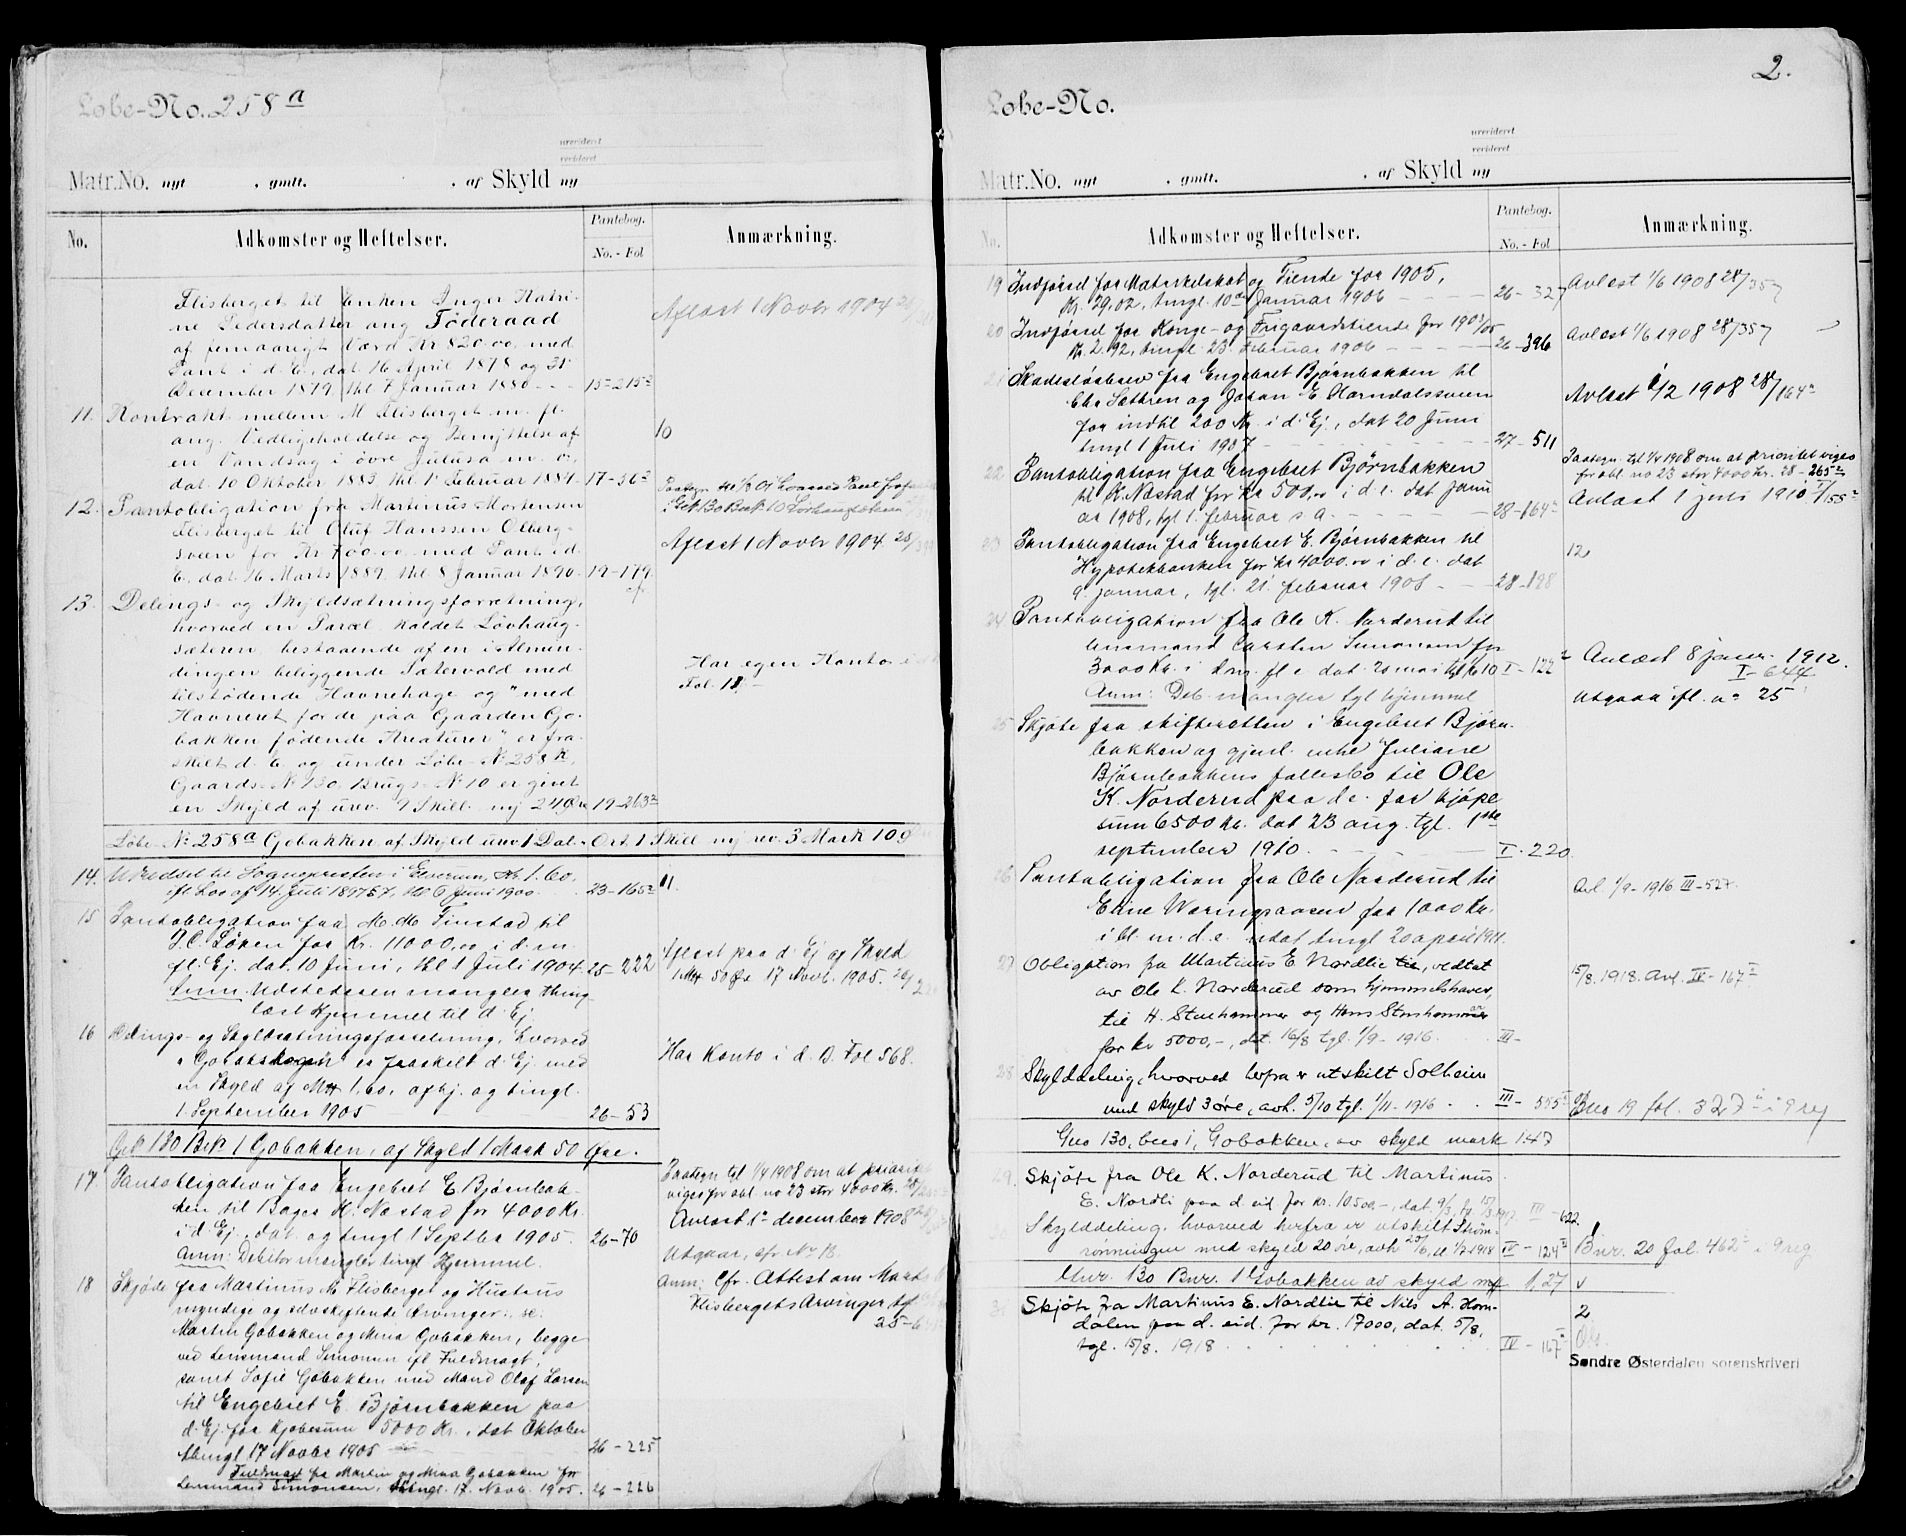 Løbe-No. 258 a
urevideret
revideret
Matr.No. nyt . gmlt. . af Skyld ny
No. Adkomster og Heftelser. Pantebog. No. - Fol Anmærkning.
Flisberget til Enken Inger Katri-
ne Pedersdatter ang Føderaad
af femaarigt Værd Kr 820.00, med
Pant i d. E, dat 16 April 1878 og 31
December 1879, thl 7 Januar 1880 15-215
Aflæst 1 Novbr 1904
11. Kontrakt mellem M Flisberget m. fl.
ang. Vedligeholdelse og Benyttelse af
en Vandsag i øvre Julusa m. v,
dat. 10 Oktober 1883, thl 1 Februar 1884 17-36
10
12. Pantobligation fra Martinus Mortensen
Flisberget til Oluf Hanssen Olberg-
sveen for Kr 700.00 med Pant i d.
E, dat 16 Marts 1889, thl 8 Januar 1890 19-179
Aflæst 1 Novbr 1904
13. Delings- og Skyldsætningsforretning,
hvorved en Parcel kaldet Løvhaug-
sæteren bestaaende af en i Almin-
dingen beliggende Sætervold med
tilstødende Havnehage og "med
Havneret for de paa Gaarden Go-
bakken fødende Kreaturer" er fra-
skilt d. E og under Løbe-No 258
Gaards-No 130, Brugs-No 10 er givet
en Skyld af urev. 9 Skill. ny 24 Øre 19-263
Har egen Konto i
Fol. 18.
Løbe No 258a Gobakken af Skyld urev 1 Dal - Ort 1 Skill ny rev. 3 Mark 10
14. Udredsel til Sognepresten i Elverum, Kr 1.60,
ifl Lov af 14 Juli 1897 § 7, thl 6 Juni 1900. 23-165
11.
15 Pantobligation fra M. M. Finstad til
J. C. Løken for Kr. 11000,00 i d. m.
fl. Ej. dat. 10 Juni, thl 1 Juli 1904. 25-222
Anm: Udstederen mangler thing-
læst Hjemmel til d. Ej.
Aflæst paa d. Ej og Skyld
1 Mk 50 Øre 17 Novb. 1905.
16 Delings- og Skyldsætningsforretning, hvorved
"Gobakskogen" er fraskilt d. Ej. med
en Skyld af Mk 1.60, afhj. og tingl.
1 September 1905 26-53
Har Konto i d. B. Fol 568.
Gn 130 Bn 1 Gobakken, af Skyld 1 Mark 50 Øre.
17 Pantobligation fra Engebret E. Bjørnbak-
ken til Bager H. Næstad for 4000 Kr.
i d. Ej., dat. og tingl 1 Septbr 1905. 26-70
Anm: Debitor mangler tingl Hjemmel.
Paategn tgl 1/4 1908 om at priorit
viges for obl. no 23 stor 4000 kr.
Avlæst 1 december 1908
Utgaar, cfr No 18.
18 Skjøde fra Martinus M. Flisberget og Hustrus
myndige og selvskiftende Arvinger: se:
Martin Gobakken og Mina Gobakken, begge
ved Lensmand Simonsen ifl Fuldmagt,
samt Sofie Gobakken med Mand Olaf Larsen
til Engebret E. Bjørnbakken paa
d. Ej. for Kjøbesum 5000 Kr., dat Oktober
thingl 17 Novbr 1905 26-225
Fuldmagt fra Martin og Mina Gobakken for
Lensmand Simonsen, thingl. 17. Novb. 1905. 26-226
Anm: Cfr. Attest om Marts
Flisbergets Arvinger
25-6
2.
Løbe-No.
urevideret
revideret
Matr.No. nyt . gmlt. . af Skyld ny
No. Adkomster og Heftelser. Pantebog. No. - Fol Anmærkning.
19 Indførsel for Matrikelskat og Tiende for 1905,
Kr. 29,02, tingl. 10de Januar 1906 26-327
Avlæst 1/6 1908 28/357
20 Indførsel for Konge- og Frigaardstiende for 1903/05
Kr. 2.92, tingl. 23. Februar 1906 26-396
Avlæst 1/6 1908 28/357
21 Skadesløsbrev fra Engebret Bjørnbakken til
Chr Sætren og Johan E Horndalssveen
for indtil 200 Kr. i d. Ej., dat 20 Juni
tingl 1 Juli 1907 27-511
Avlæst 1/2 1908 28/164
22 Pantobligation fra Engebret Bjørnbakken
til K. Næstad for kr 500,00 i d. e. dat janu
ar 1908, tgl 1. februar s. a. 28-164
Paategn. tgl 1/4 1908 om at prioritet viges
for obl. no 23 stor 4000 kr. 28-265
Avlæst 1 juli 1910 I/155
23 Pantobligation fra Engebret E. Bjørnbakken til
Hypotekbanken for kr 4000.00 i d. e. dat
9. januar, tgl. 21 februar 1908 28-198
12
24 Pantobligation fra Ole K. Norderud til
lensmand Carsten Simonsen for
3000 kr. i d. m. fl. e. dat. 20 mai tgl 1/6 10 I-122
Anm: Deb. mangler tgl hjemmel
Avlæst 8 januar 1912.
I-644
Utgaar ifl. no 25
25 Skjøte fra skifteretten i Engebret Bjørn-
bakken og gjenl. enke Juliane
Bjørnbakkens fællesbo til Ole
K. Norderud paa d. e. for kjøpe
sum 6500 kr. dat 23 aug. tgl. 1ste
september 1910. I-220
26 Pantobligation fra Ole Norderud til
Eline Waringsaasen for 1000 kr.
i bl. m. d. e. udat tingl 20 april 1911.
Avl 1/9-1916 III-527.
27 Obligation fra Martinus E. Nordlie til, vedtat
av Ole K. Norderud som hjemmelshaver,
til H. Storhammer og Hans Storhammer
for kr 5000,-, dt. 16/8 tgl. 1/9-1916. III-
15/8. 1918. Avl. IV-167
28 Skylddeling, hvorved herfra er utskilt Solheim
med skyld 3 øre, avh. 5/10 tgl. 1/11-1916 III-555
Bno 19 fol. 327 i 9 reg
Gno 130, bno 1, Gobakken, av skyld mark 1.47
29. Skjøte fra Ole K. Norderud til Martinus
E. Nordli paa d. eid for kr. 10500-, dat. 9/3, tg. 15/3 1917. III-622
30 Skylddeling, hvorved herfra er utskilt Strøm-
rønningen med skyld 20 øre, avh 25/6, tl 1/7 1918 IV-124
Bnr. 20 fol. 462 i 9 reg
Gnr. 130 Bnr. 1 Gobakken av skyld mk 1,27
31 Skjøte fra Martinus E. Nordlie til Nils A. Horn-
dalen paa d. eid. for kr. 17000, dat. 5/8,
tgl. 15/8. 1918 IV-167
2
Søndre Østerdalen sorenskriveri